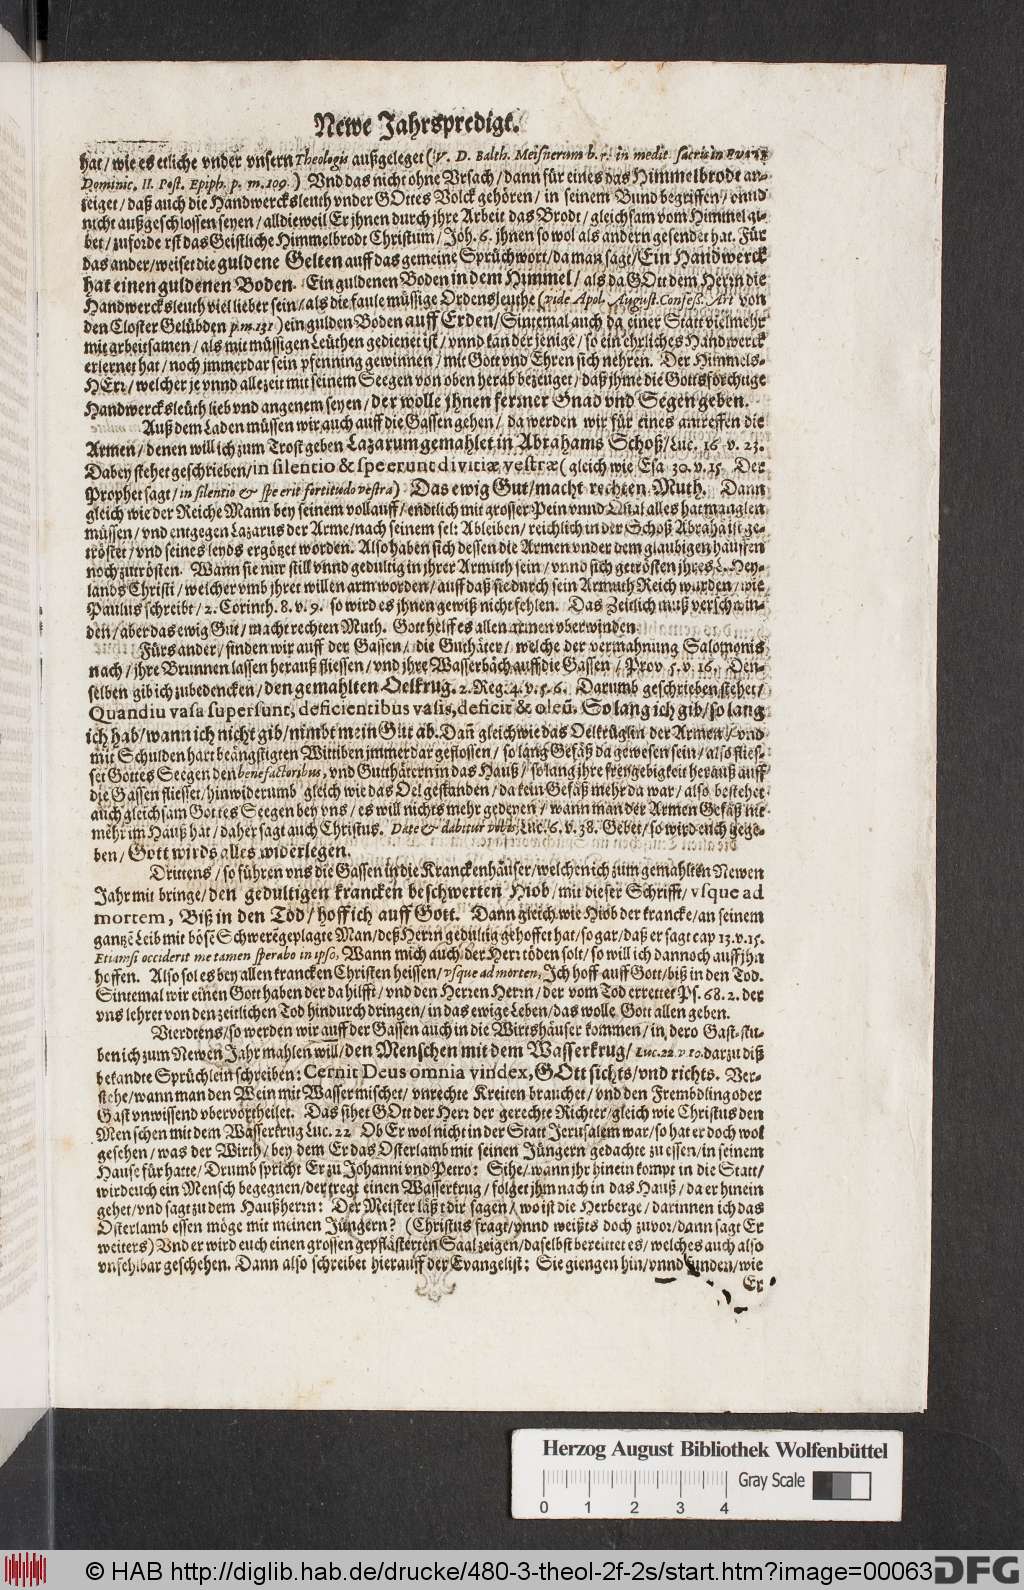 Newe Jahrspredigt.
hat / wie es etliche vnder vnsern Theologis außgeleget (V. D. Balth. Meisnerum b. r. in medit. sacris in
Dominic. II. Post. Epiph. p. m. 109.) Vnd das nicht ohne Vrsach / dann für eines das Himmelbrodt an-
zeiget / daß auch die Handwercksleuth vnder GOttes Volck gehören / in seinem Bund begriffen / vnnd
nicht außgeschlossen seyen / alldieweil Er jhnen durch jhre Arbeit das Brodt / gleichsam vom Himmel gi-
bet / zuforderst das Geistliche Himmelbrodt Christum / Joh. 6. jhnen so wol als andern gesendet hat. Für
das ander / weiset die guldene Gelten auff das gemeine Sprüchwort / da man sagt / Ein Handwerck
hat einen guldenen Boden. Ein guldenen Boden in dem Himmel / als da GOtt dem Herrn die
Handwercksleuth viel lieber sein / als die faule müssige Ordensleuthe (vide Apol. August. Confess. Art von
den Closter Gelübden p. m. 131) ein gulden Boden auff Erden / Sintemal auch da einer Statt vielmehr
mit arbeitsamen / als mit müssigen Leuthen gedienet ist / vnnd kan der jenige / so ein ehrliches Handwerck
erlernet hat / noch jmmerdar sein pfenning gewinnen / mit Gott vnd Ehren sich nehren. Der Himmels-
HErr / welcher je vnnd allezeit mit seinem Seegen von oben herab bezeuget / daß jhme die Gottsförchtige
Handwercksleuth lieb vnd angenem seyen / der wolle jhnen ferrner Gnad vnd Segen geben.
Auß dem Laden müssen wir auch auff die Gassen gehen / da werden wir für eines antreffen die
Armen / denen will ich zum Trost geben Lazarum gemahlet in Abrahams Schoß / Luc. 16 v. 23.
Dabey stehet geschrieben / in silentio & spe erunt divitiæ vestræ (gleich wie Esa 30. v. 15 Der
Prophet sagt / in silentio & spe erit fortitudo vestra) Das ewig Gut / macht rechten Muth. Dann
gleich wie der Reiche Mann bey seinem vollauff / endtlich mit grosser Pein vnnd Qual alles hat manglen
müssen / vnd entgegen Lazarus der Arme / nach seinem sel: Ableiben / reichlich in der Schoß Abrahā ist ge-
tröstet / vnd seines leyds ergötzet worden. Also haben sich dessen die Armen vnder dem glaubigen hauffen
noch zutrösten. Wann sie nur still vnnd gedultig in jhrer Armuth sein / vnnd sich getrösten jhres L. Hey-
lands Christi / welcher vmb jhret willen arm worden / auff daß sie durch sein Armuth Reich wurden / wie
Paulus schreibt / 2. Corinth. 8. v. 9. so wird es jhnen gewiß nicht fehlen. Das Zeitlich muß verschwin-
den / aber das ewig Gut / macht rechten Muth. Gott helff es allen armen vberwinden
Fürs ander / finden wir auff der Gassen / die Guthäter / welche der vermahnung Salomonis
nach / jhre Brunnen lassen herauß fliessen / vnd jhre Wasserbäch auff die Gassen / Prov 5. v. 16. Den-
selben gib ich zubedencken / den gemahlten Oelkrug. 2. Reg. 4. v. 5. 6. Darumb geschrieben stehet /
Quandiu vasa supersunt, deficientibus vasis, deficit & oleū. So lang ich gib / so lang
ich hab / wann ich nicht gib / nimbt mein Gut ab. Dañ gleich wie das Oelkrüglin der Armen / vnd
mit Schulden hart beängstigten Wittiben jmmerdar geflossen / so lang Gefäß da gewesen sein / also flies-
set Gottes Seegen den benefactoribus, vnd Gutthätern in das Hauß / so lang jhre freygebigkeit herauß auff
die Gassen fliesset / hinwiderumb gleich wie das Oel gestanden / da kein Gefäß mehr da war / also bestehet
auch gleichsam Gottes Seegen bey vns / es will nichts mehr gedeyen / wann man der Armen Gefäß nit
mehr im Hauß hat / daher sagt auch Christus. Date & dabitur vobis, Luc. 6. v. 38. Gebet / so wird euch gege-
ben / Gott wirds alles widerlegen.
Drittens / so führen vns die Gassen in die Kranckenhäuser / welchen ich zum gemahlten Newen
Jahr mit bringe / den gedultigen krancken beschwerten Hiob / mit dieser Schrifft / vsque ad
mortem, Biß in den Tod / hoff ich auff Gott. Dann gleich wie Hiob der krancke / an seinem
gantzē Leib mit bösē Schwerē geplagte Man / deß Herrn gedultig gehoffet hat / so gar / daß er sagt cap 13. v. 15.
Etiamsi occiderit me tamen sperabo in ipso, Wann mich auch der Herr töden solt / so will ich dannoch auff jhn
hoffen. Also sol es bey allen krancken Christen heissen / vsque ad mortem, Ich hoff auff Gott / biß in den Tod.
Sintemal wir einen Gott haben der da hilfft / vnd den Herren Herrn / der vom Tod errettet Ps. 68. 2. der
vns lehret von den zeitlichen Tod hindurch dringen / in das ewige Leben / das wolle Gott allen geben.
Vierdtens / so werden wir auff der Gassen auch in die Wirtshäuser kommen / in dero Gast-stu-
ben ich zum Newen Jahr mahlen will / den Menschen mit dem Wasserkrug / Luc. 22 v 10. darzu diß
bekandte Sprüchlein schreiben: Cernit Deus omnia vindex, GOtt sichts / vnd richts. Ver-
stehe / wann man den Wein mit Wasser mischet / vnrechte Kreiten brauchet / vnd den Frembdling oder
Gast vnwissend vbervortheilet. Das sihet GOtt der Herr der gerechte Richter / gleich wie Christus den
Menschen mit dem Wasserkrug Luc. 22 Ob Er wol nicht in der Statt Jerusalem war / so hat er doch wol
gesehen / was der Wirth / bey dem Er das Osterlamb mit seinen Jüngern gedachte zu essen / in seinem
Hause für hatte / Drumb spricht Er zu Johanni vnd Petro: Sihe / wann jhr hinein kompt in die Statt /
wird euch ein Mensch begegnen / der tregt einen Wasserkrug / folget jhm nach in das Hauß / da er hinein
gehet / vnd sagt zu dem Haußherrn: Der Meister läßt dir sagen / wo ist die Herberge / darinnen ich das
Osterlamb essen möge mit meinen Jüngern? (Christus fragt / vnnd weißts doch zuvor / dann sagt Er
weiters) Vnd er wird euch einen grossen gepflästerten Saal zeigen / daselbst bereittet es / welches auch also
vnfehlbar geschehen. Dann also schreibet hierauff der Evangelist: Sie giengen hin / vnnd funden / wie
Er
Herzog August Bibliothek Wolfenbüttel
Gray Scale
0 1 2 3 4
© HAB http://diglib.hab.de/drucke/480-3-theol-2f-2s/start.htm?image=00063
DFG